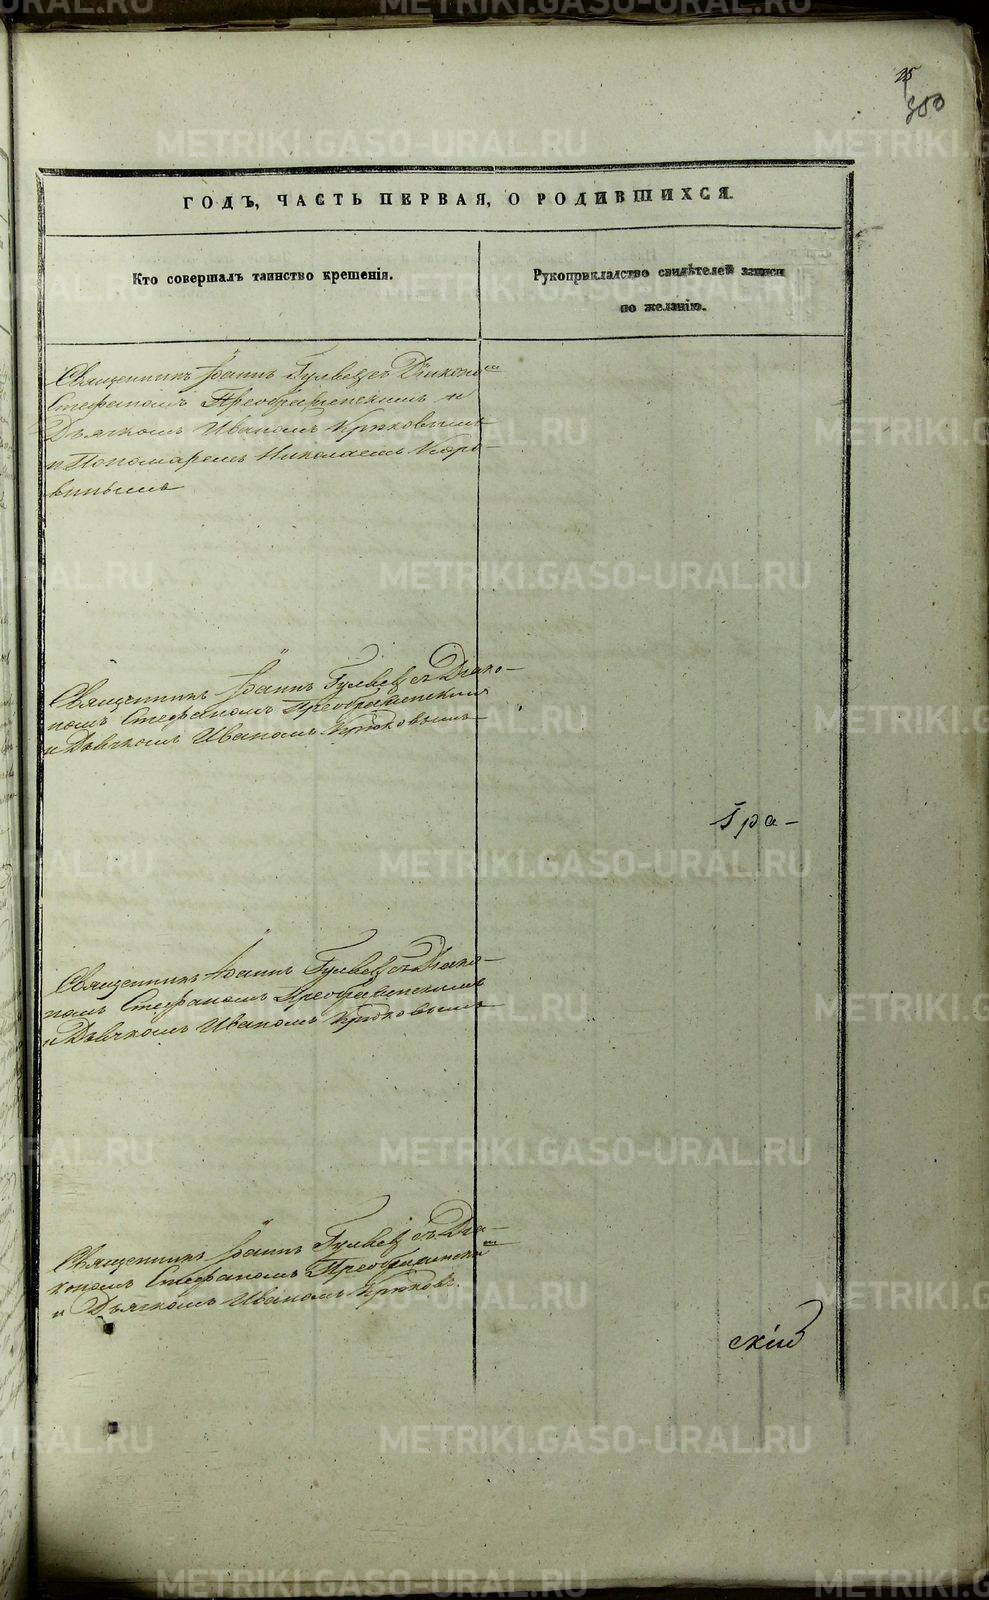 25
350
ГОДЪ, ЧАСТЬ ПЕРВАЯ, О РОДИВШИХСЯ.
Кто совершалъ таинство крещенія.
Рукоприкладство свидѣтелей записи
по желанію.
Священникъ Іоаннъ Гуляевъ съ Діакономъ
Стефаномъ Преображенскимъ и
Дьячкомъ Иваномъ Крюковымъ
и Пономаремъ Николаемъ Коро-
винымъ
Священникъ Іоаннъ Гуляевъ съ Діако-
номъ Стефаномъ Преображенскимъ
и Дьячкомъ Иваномъ Крюковымъ
Гра-
Священникъ Іоаннъ Гуляевъ съ Діако-
номъ Стефаномъ Преображенскимъ
и Дьячкомъ Иваномъ Крюковымъ
Священникъ Іоаннъ Гуляевъ съ Діа-
кономъ Стефаномъ Преображенскимъ
и Дьячкомъ Иваномъ Крюков.
скій
METRIKI.GASO-URAL.RU